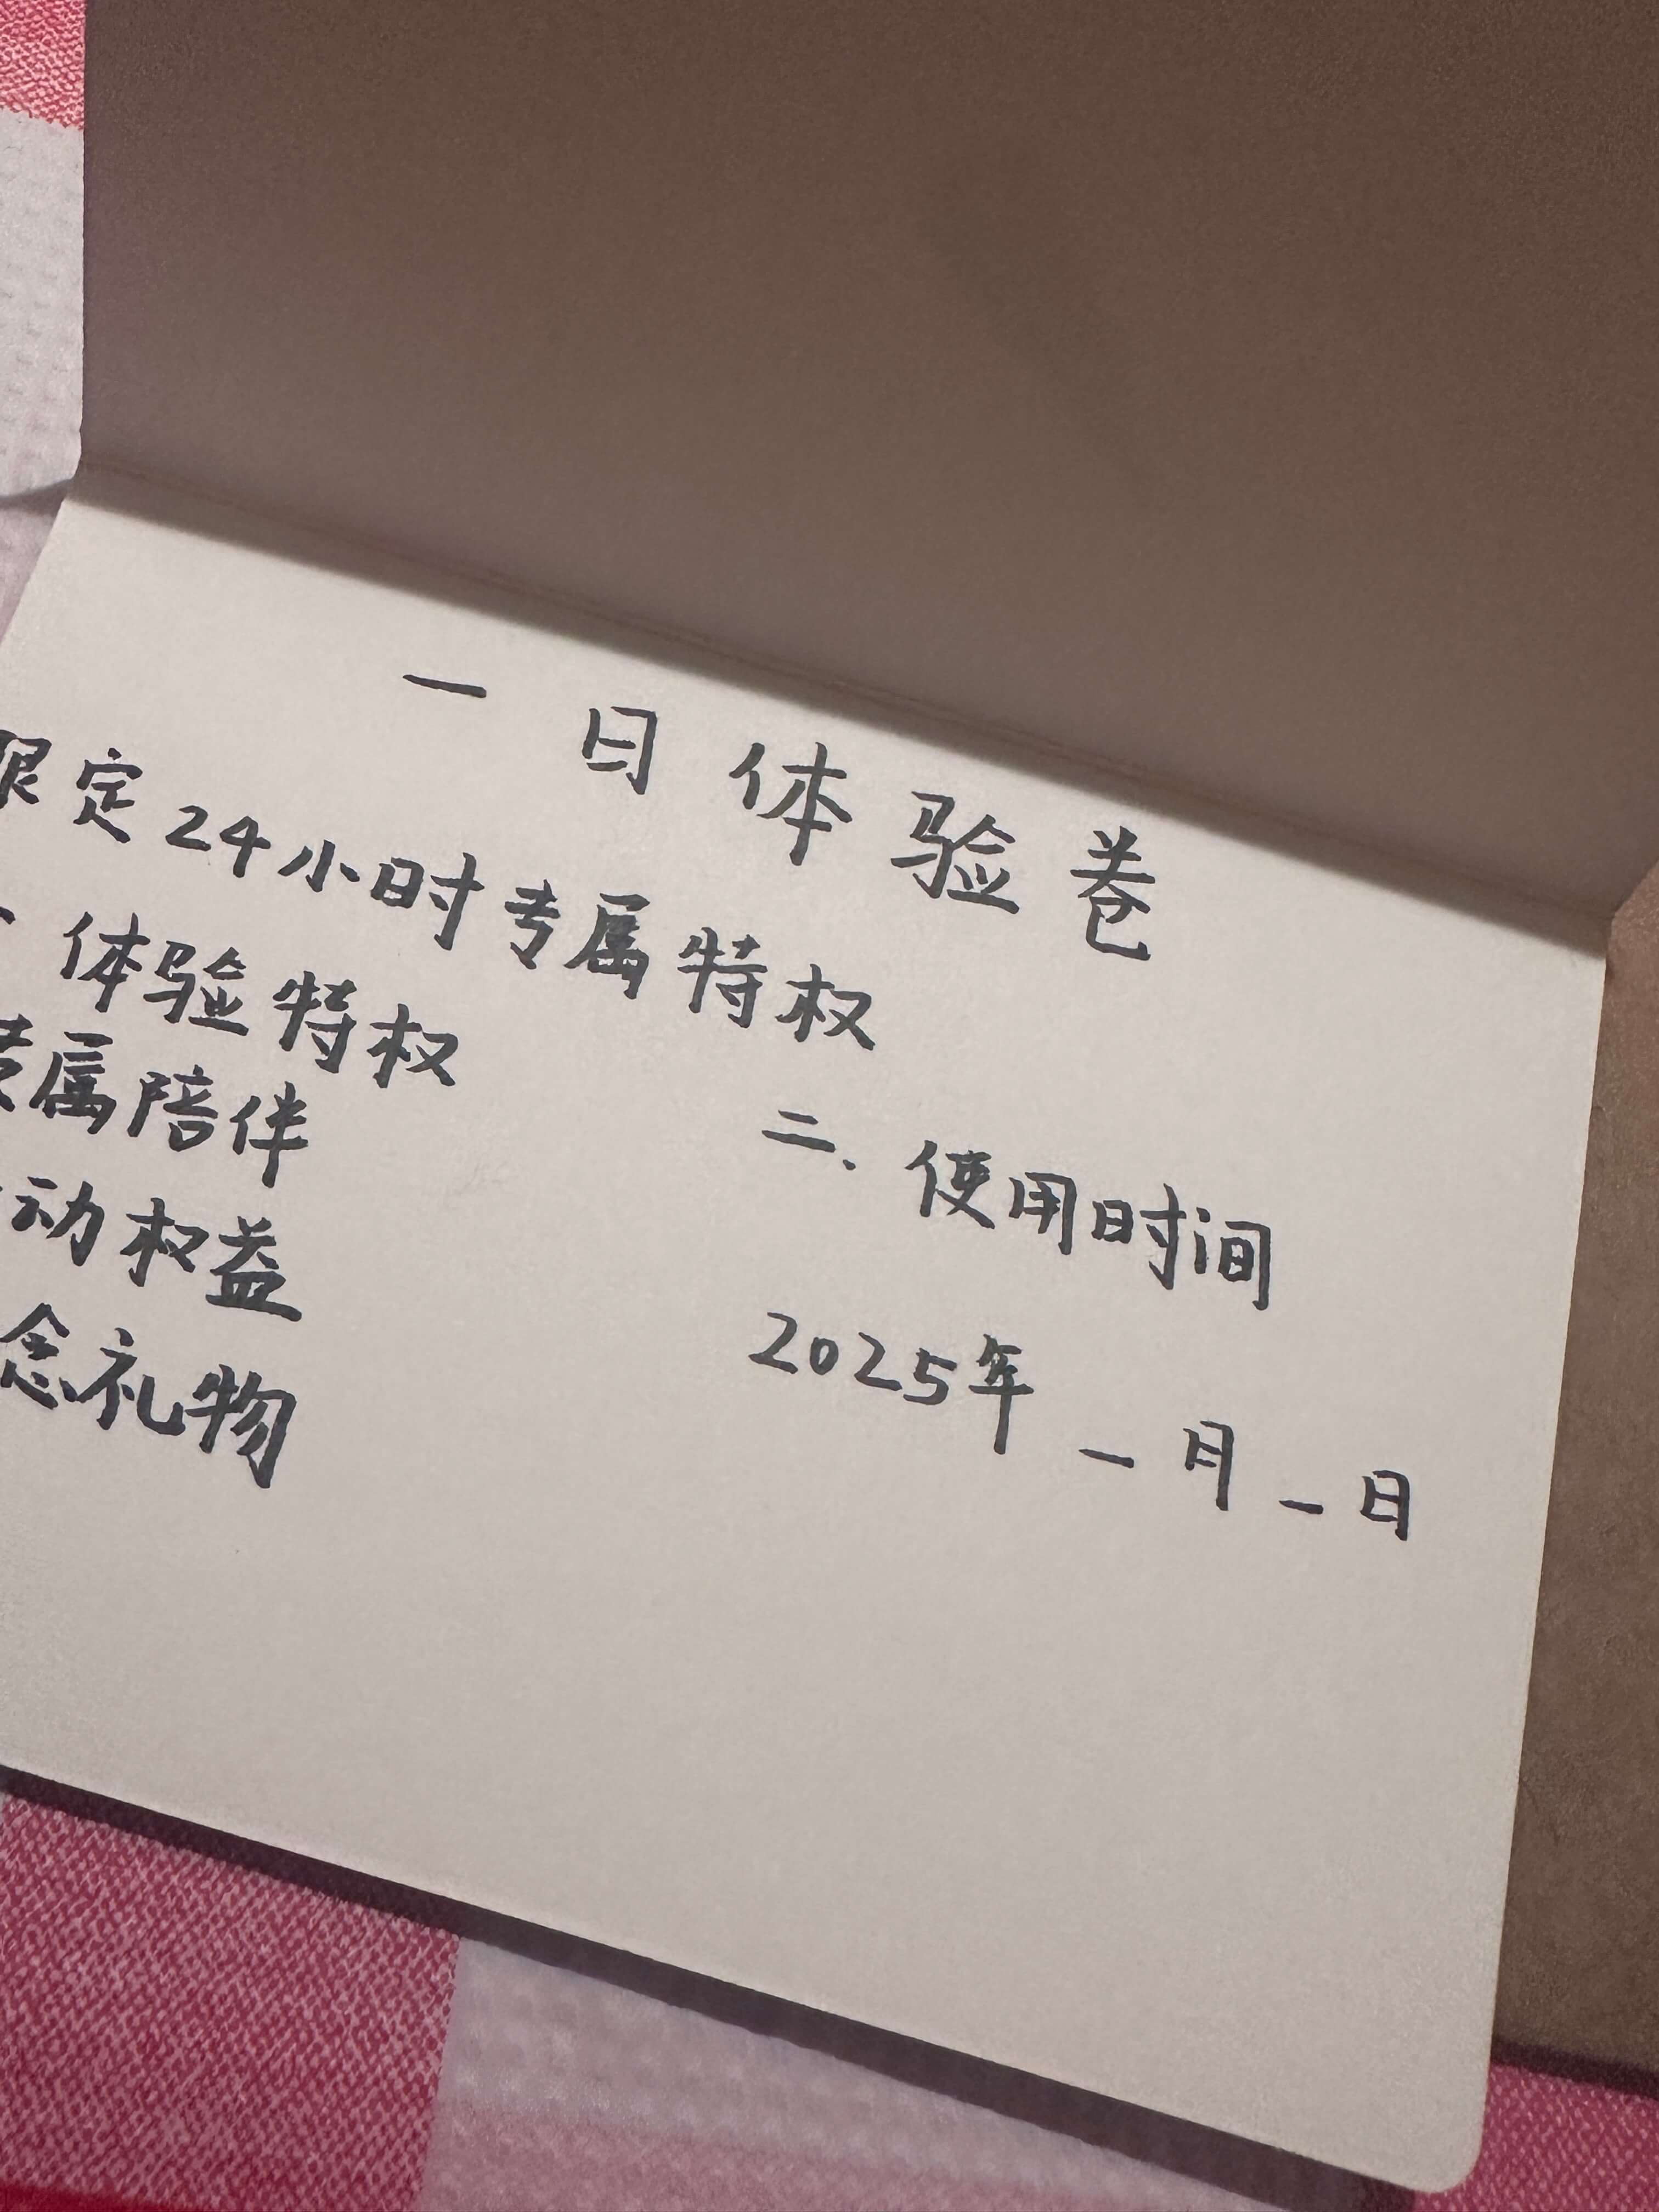 一日体验卷
限定24小时专属特权
、体验特权
专属陪伴
动权益
念礼物
二、使用时间
2025年_月_日